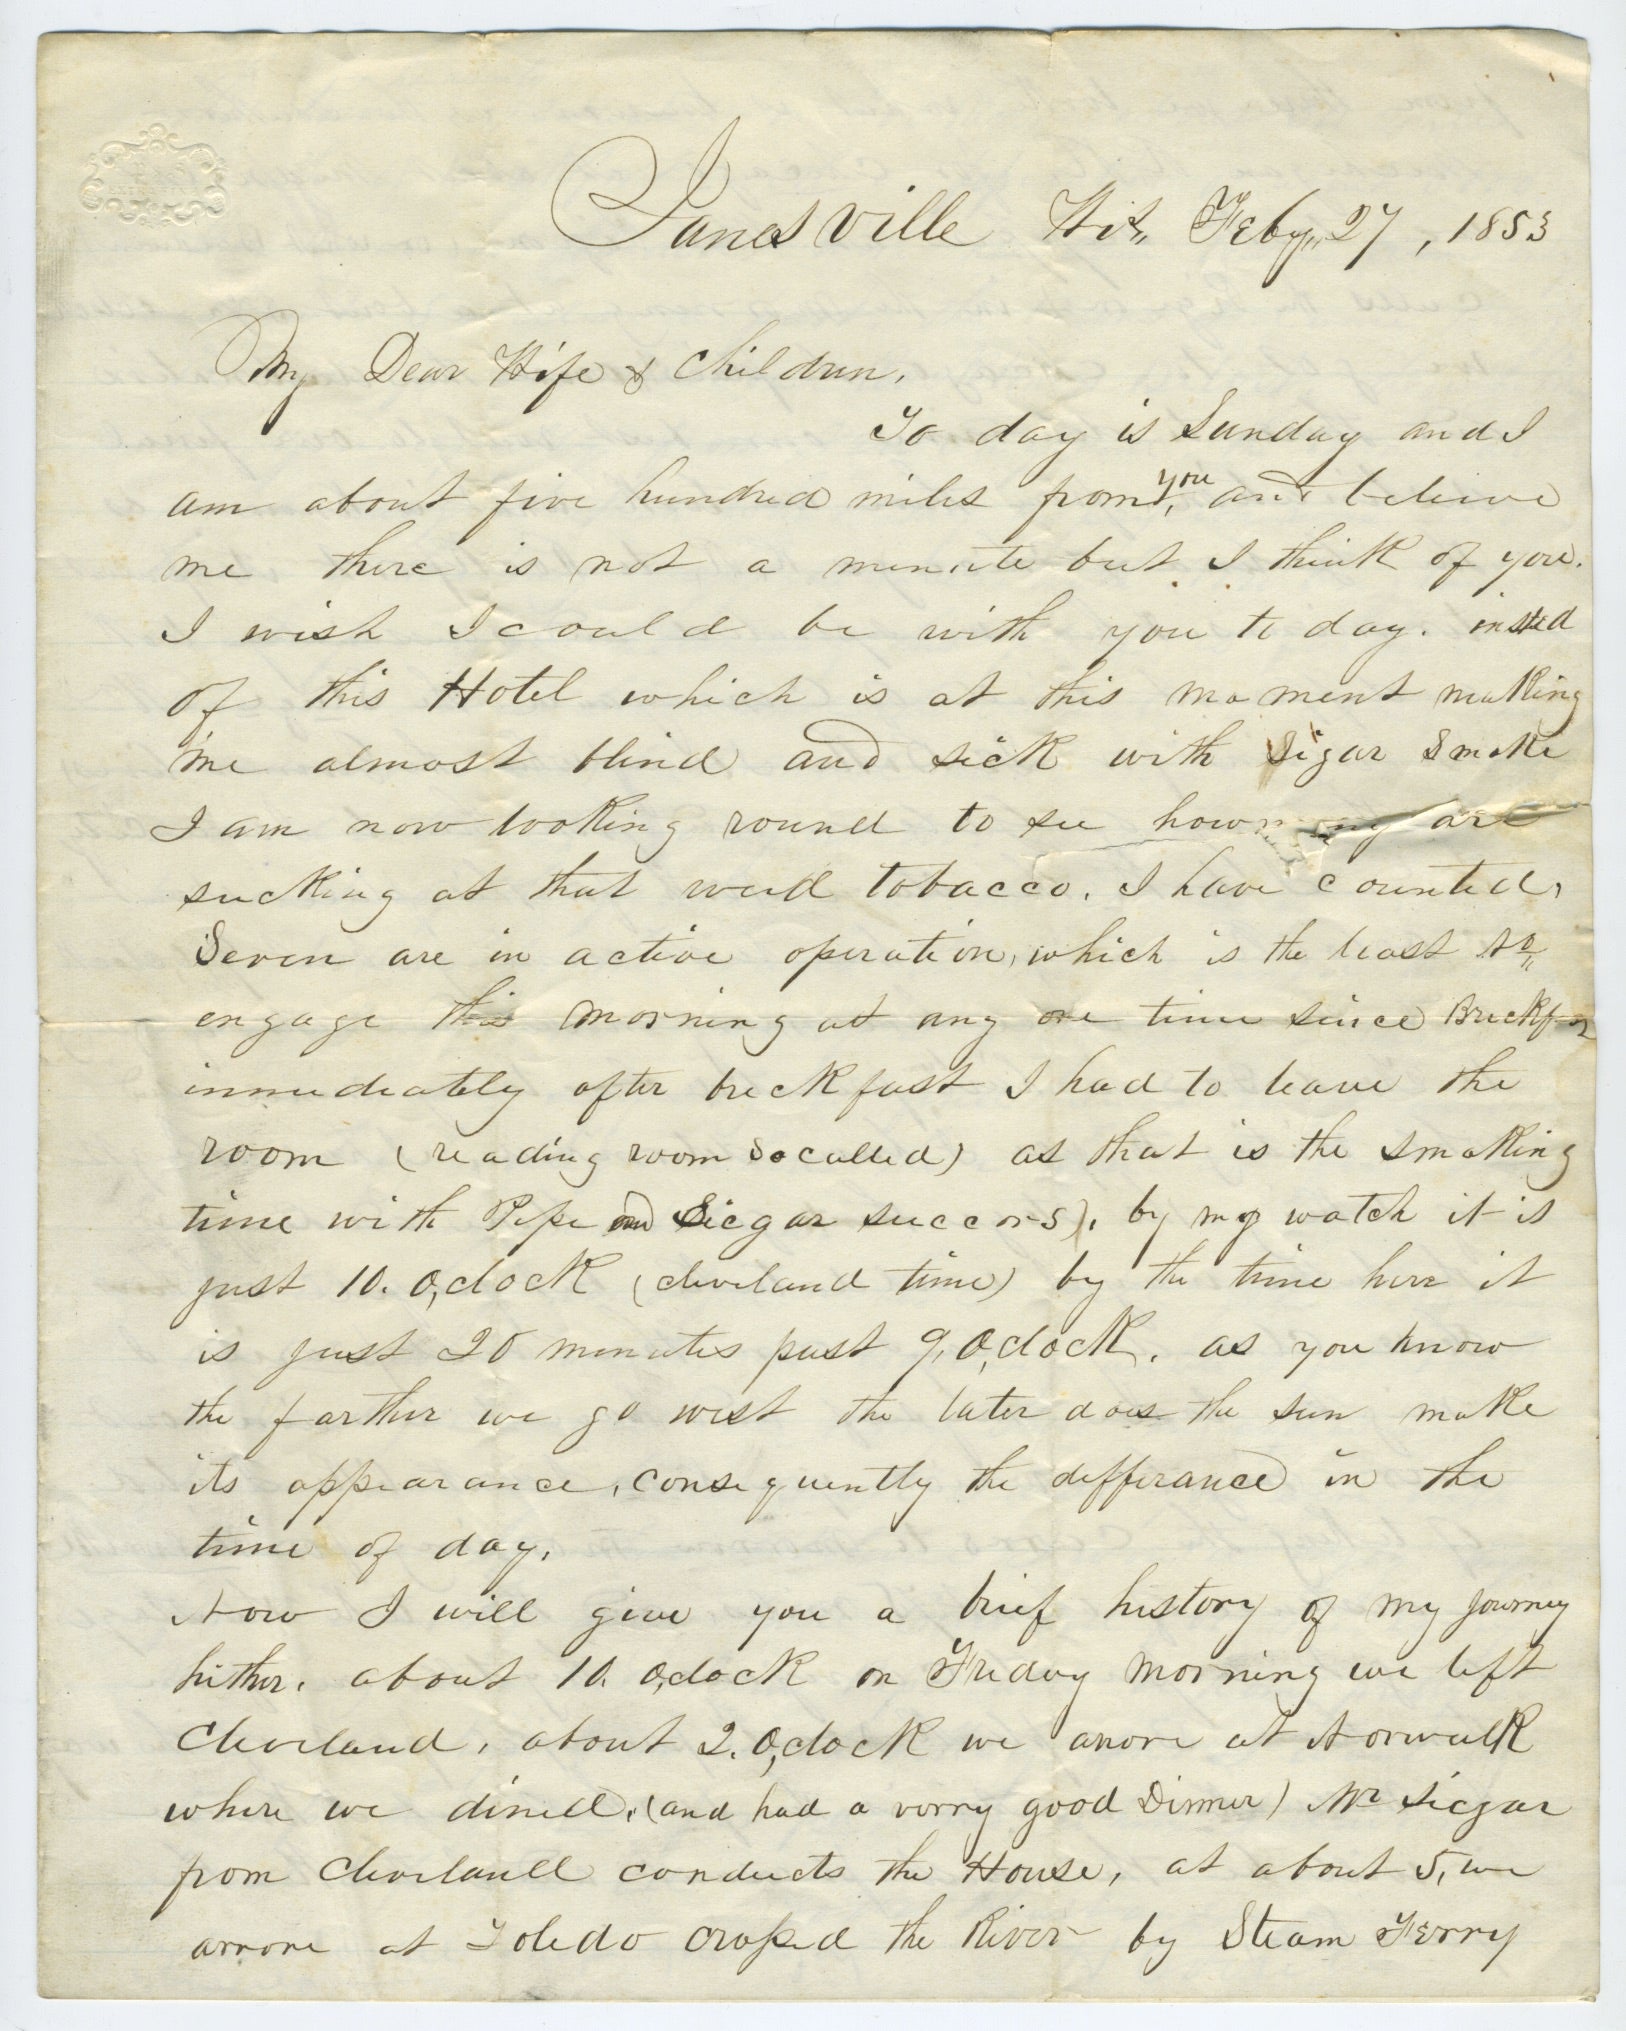 Janesville Wis,, Feby,, 27, 1853
My Dear Wife & Children,
To day is Sunday and I
am about five hundred miles from you, and believe
me there is not a minute but I think of you.
I wish I could be with you to day. insted
of this Hotel which is at this moment making
me almost blind and sick with Sigar Smoke
I am now looking round to see how many are
sucking at that weed tobacco. I have counted,
Seven are in active operation, which is the least No,,
engage this morning at any one time since Breckfas
immediately after breckfast I had to leave the
room (reading room so called) as that is the smoking
time with Pipe and Sicgar succors), by my watch it is
just 10. O,clock (cleveland time) by the time here it
is just 20 minutes past 9, O,clock. as you know
the farther we go west the later does the sun make
its appearance, consequently the differance in the
time of day,
Now I will give you a brief history of my Journey
hither. about 10. O,clock on Friday morning we left
Cleveland, about 2. O,clock we arrove at Norwalk
where we dined, (and had a verry good Dinner) Mr Sicgar
from Cleveland conducts the House, at about 5, we
arrove at Toledo crossed the River by Steam Ferry